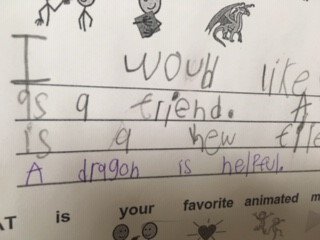 I woud like
as a friend. A
is a new
A dragon is helpful.
is your favorite animated